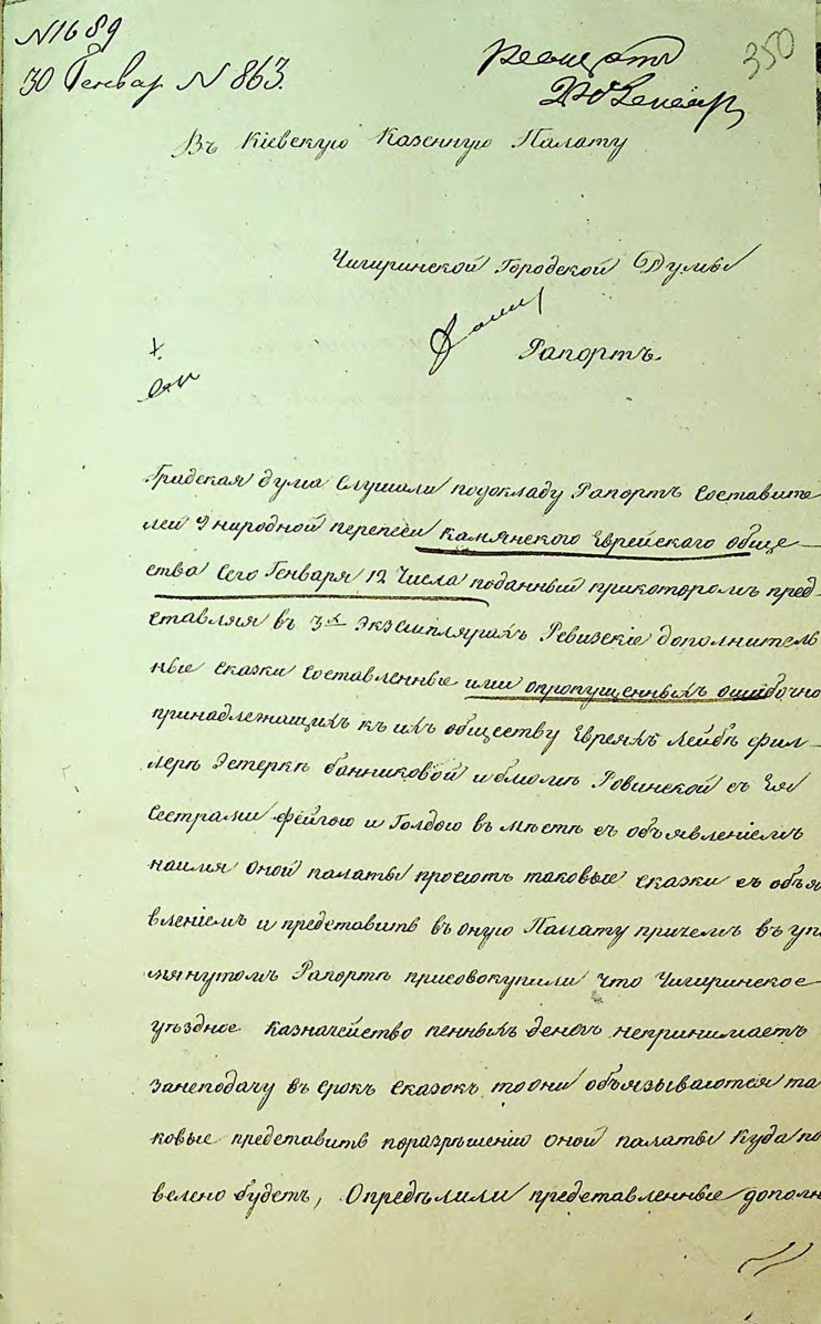 N1689
30 Генвар N 863.
350
Въ Кіевскую Казенную Палату
Чигиринской Городской Думы
Рапортъ.
Градская дума Слушали подокладу Рапортъ Составите
лей 9 народной переписи Камянского Еврейскаго обще
ства Сего Генваря 12 Числа поданный прикоторомъ пред
ставляя въ 3х Экземплярахъ Ревизскіе дополнитель
ные сказки составленные ими опропущенныхъ ошибочно
принадлежащихъ къ ихъ обществу Евреяхъ Лейбѣ фил
лерѣ Эстеркѣ банниковой и блюмѣ Ровинской съ Ея
Сестрами фейгою и Голдою въ мѣстѣ съ объявленіемъ
наимя оной палаты просютъ таковые сказки съ объя
вленіемъ и представить въ оную Палату причемъ въ упо
мянутомъ Рапортѣ присовокупили что Чигиринское
уѣздное Казначейство пенныхъ денегъ непринимаетъ
занеподачу въ срокъ сказокъ то они объязываются та
ковые представить поразрѣшенію оной палаты куда по
велено будетъ, Опредѣлили представленные дополн